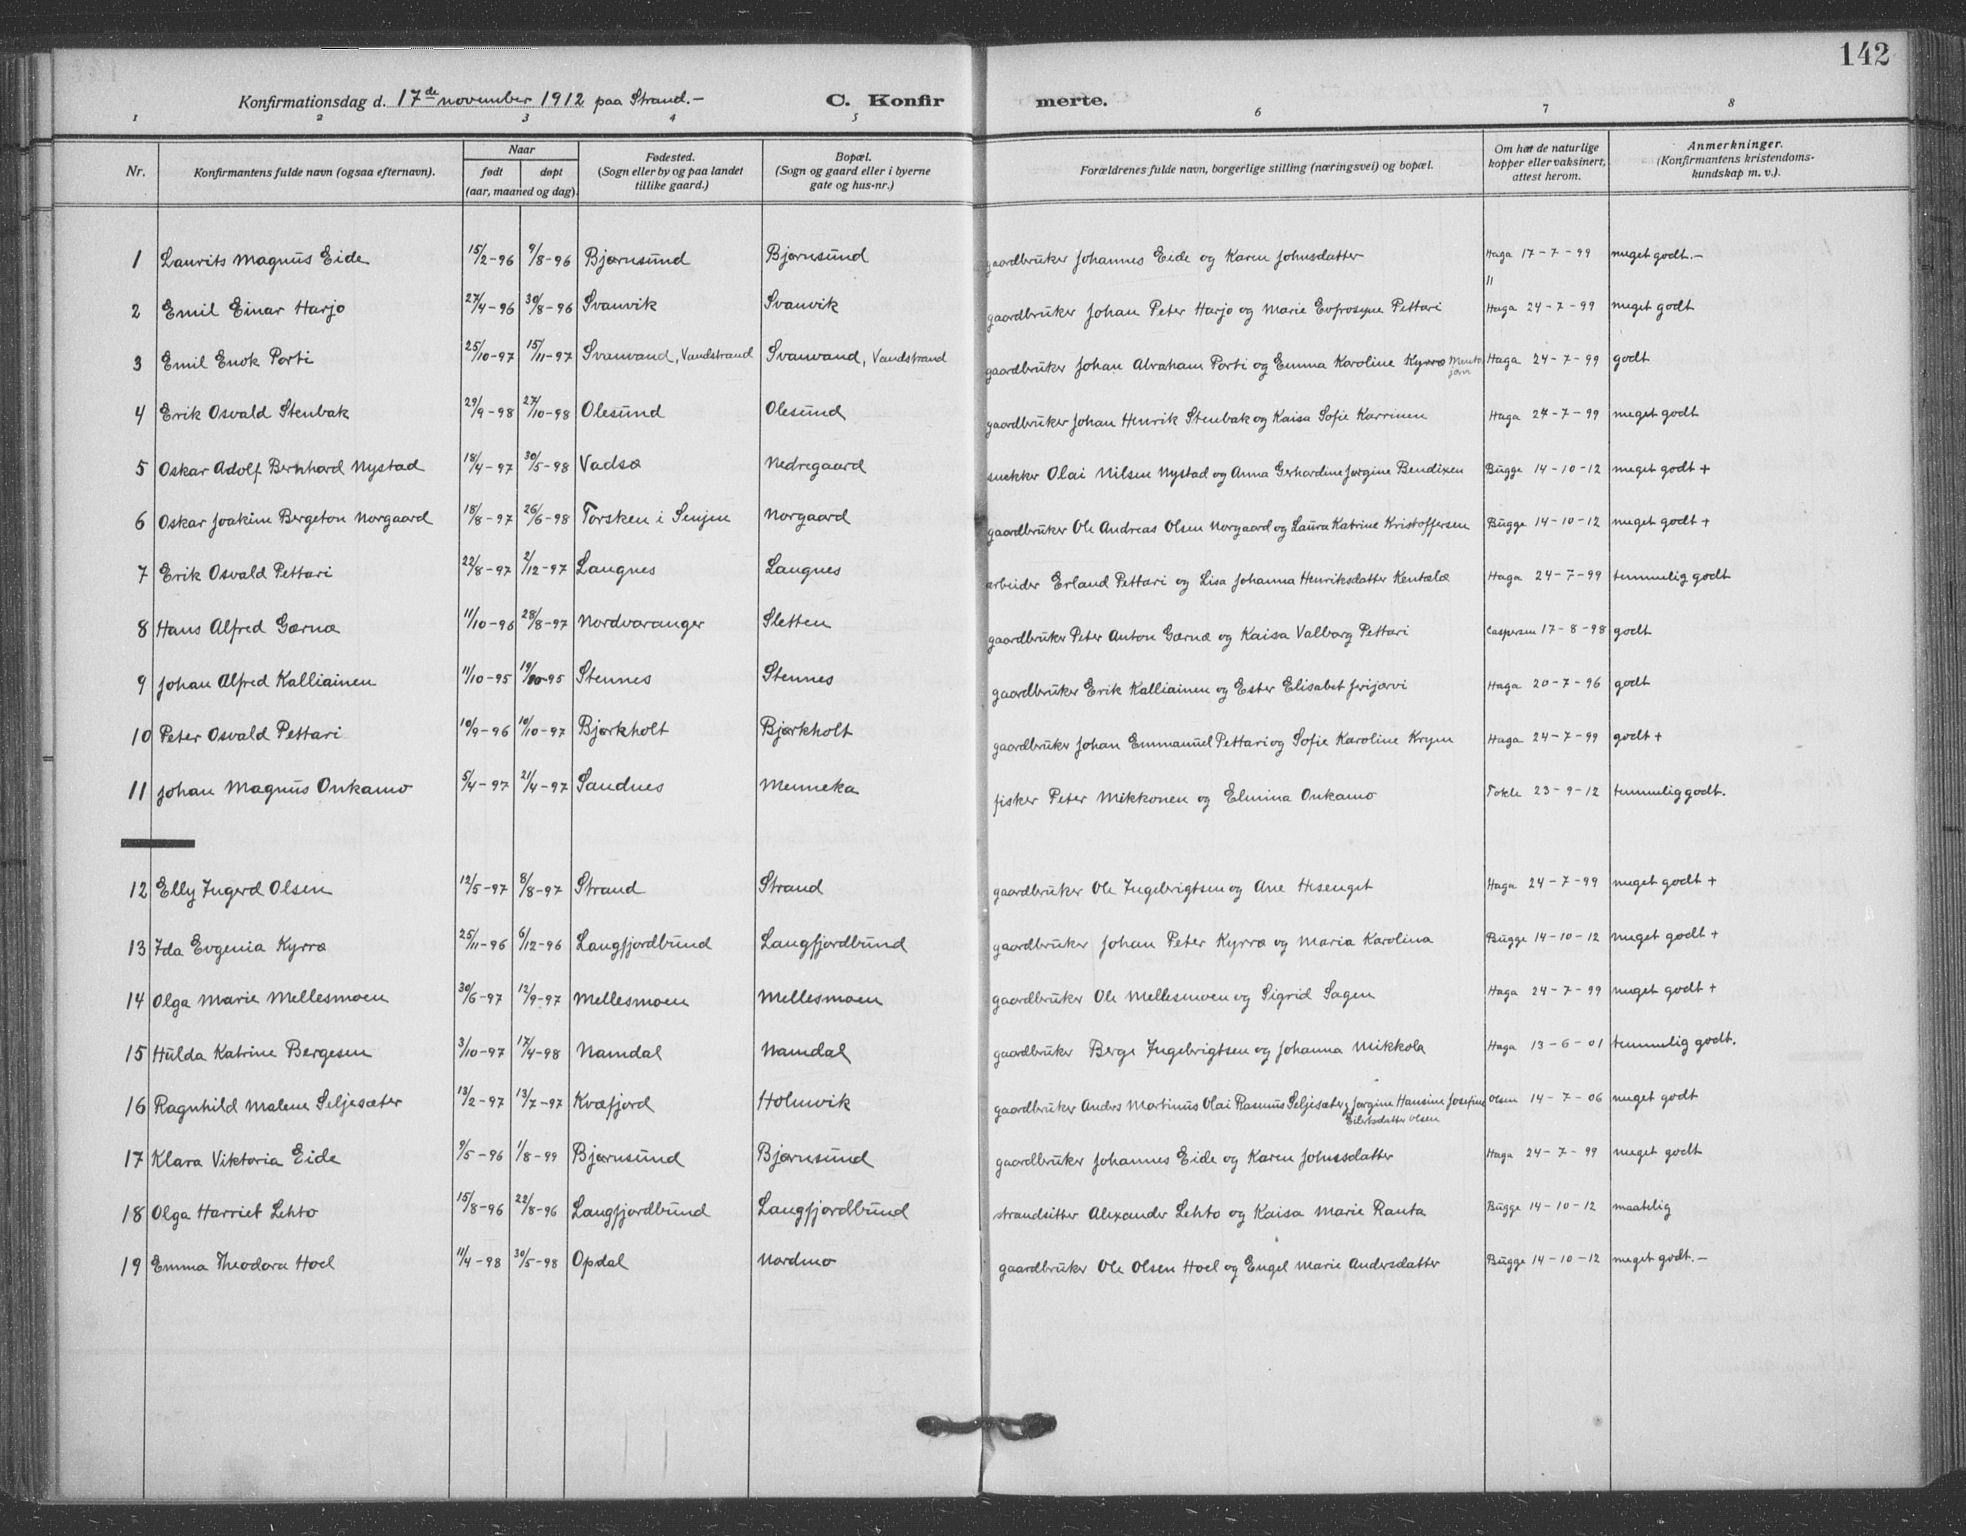 142
Konfirmationsdag d. 17de november 1912 paa Strand.- C. Konfir merte.
1 2 3 4 5 6 7 8
Nr. Konfirmantens fulde navn (ogsaa efternavn). Naar født døpt (aar, maaned og dag) Fødested. (Sogn eller by og paa landet tillike gaard.) Bopæl. (Sogn og gaard eller i byerne gate og hus-nr.) Forældrenes fulde navn, borgerlige stilling (næringsvei) og bopæl. Om hat de naturlige kopper eller vaksinert, attest herom. Anmerkninger. (Konfirmantens kristendoms-kundskap m. v.).
1 Laurits Magnus Eide 15/2-96 9/8-96 Bjørnsund Bjørnsund gaardbruker Johannes Eide og Karen Johnsdatter Haga 17-7-99 meget godt.-
"
2 Emil Einar Harjo 27/4-96 30/8-96 Svanvik Svanvik gaardbruker Johan Peter Harjo og Marie Evfrosyne Pettari Haga 24-7-99 meget godt
3 Emil Enok Porti 25/10-97 15/11-97 Svanvand, Vandstrand Svanvand, Vandstrand gaardbruker Johan Abraham Porti og Emma Karoline Kyrrø Menta jærvi Haga 24-7-99 godt
4 Erik Osvald Stenbak 29/9-98 27/10-98 Olesund Olesund gaardbruker Johan Henrik Stenbak og Kaisa Sofie Karrinen Haga 24-7-99 meget godt
5 Oskar Adolf Bernhard Nystad 18/4-97 30/5-98 Vadsø Nedregaard snekker Olai Nilsen Nystad og Anna Gerhardine Jørgine Bendixen Bugge 14-10-12 meget godt +
6 Oskar Joakim Bergeton Norgaard 18/8-97 26/6-98 Torsken i Senjen Norgaard gaardbruker Ole Andreas Olsen Norgaard og Laura Katrine Kristoffersen Bugge 14-10-12 meget godt +
7 Erik Osvald Pettari 22/8-97 2/12-97 Langnes Langnes arbeider Erland Pettari og Lisa Johanna Henriksdatter Kentælæ Haga 24-7-99 temmelig godt
8 Hans Alfred Gærnæ 11/10-96 28/8-97 Nordvaranger Sletten gaardbruker Peter Anton Gærnæ og Kaisa Valborg Pettari Caspersen 17-8-98 godt
9 Johan Alfred Kalliainen 11/10-95 19/10-95 Stennes Stennes gaardbruker Erik Kalliainen og Ester Elisabet Jerijærvi Haga 20-7-96 godt
10 Peter Osvald Pettari 10/9-96 10/10-97 Bjørkholt Bjørkholt gaardbruker Johan Emmanuel Pettari og Sofie Karoline Krym Haga 24-7-99 godt +
11 Johan Magnus Onkamo 5/4-97 21/4-97 Sandnes Menneka fisker Peter Mikkonen og Elmina Onkamo Tokle 23-9-12 temmelig godt.
12 Elly Ingerd Olsen 12/5-97 8/8-97 Strand Strand gaardbruker Ole Ingebrigtsen og Ane Hesenget Haga 24-7-99 meget godt +
13 Ida Evgenia Kyrrø 25/11-96 6/12-96 Langfjordbund Langfjordbund gaardbruker Johan Peter Kyrrø og Maria Karolina Bugge 14-10-12 meget godt +
14 Olga Marie Mellesmoen 30/6-97 12/9-97 Mellesmoen Mellesmoen gaardbruker Ole Mellesmoen og Sigrid Sagen Haga 24-7-99 meget godt +
15 Hulda Katrine Bergesen 3/10-97 17/4-98 Namdal Namdal gaardbruker Berge Ingebrigtsen og Johanna Mikkola Haga 13-6-01 temmelig godt.
16 Ragnhild Malene Seljesæter 13/2-97 13/7-97 Kvæfjord Holmvik gaardbruker Anders Martinus Olai Rasmus Seljesæter og Jørgine Hansine Josefine Eilertsdatter Olsen Olsen 14-7-06 meget godt
17 Klara Viktoria Eide 9/5-96 1/8-99 Bjørnsund Bjørnsund gaardbruker Johannes Eide og Karen Johnsdatter Haga 24-7-99 meget godt
18 Olga Harriet Lehto 15/8-96 22/8-96 Langfjordbund Langfjordbund strandsitter Alexander Lehto og Kaisa Marie Ranta Bugge 14-10-12 maatelig
19 Emma Theodora Hoel 11/4-98 30/5-98 Opdal Nordmo gaardbruker Ole Olsen Hoel og Engel Marie Andersdatter Bugge 14-10-12 meget godt.-